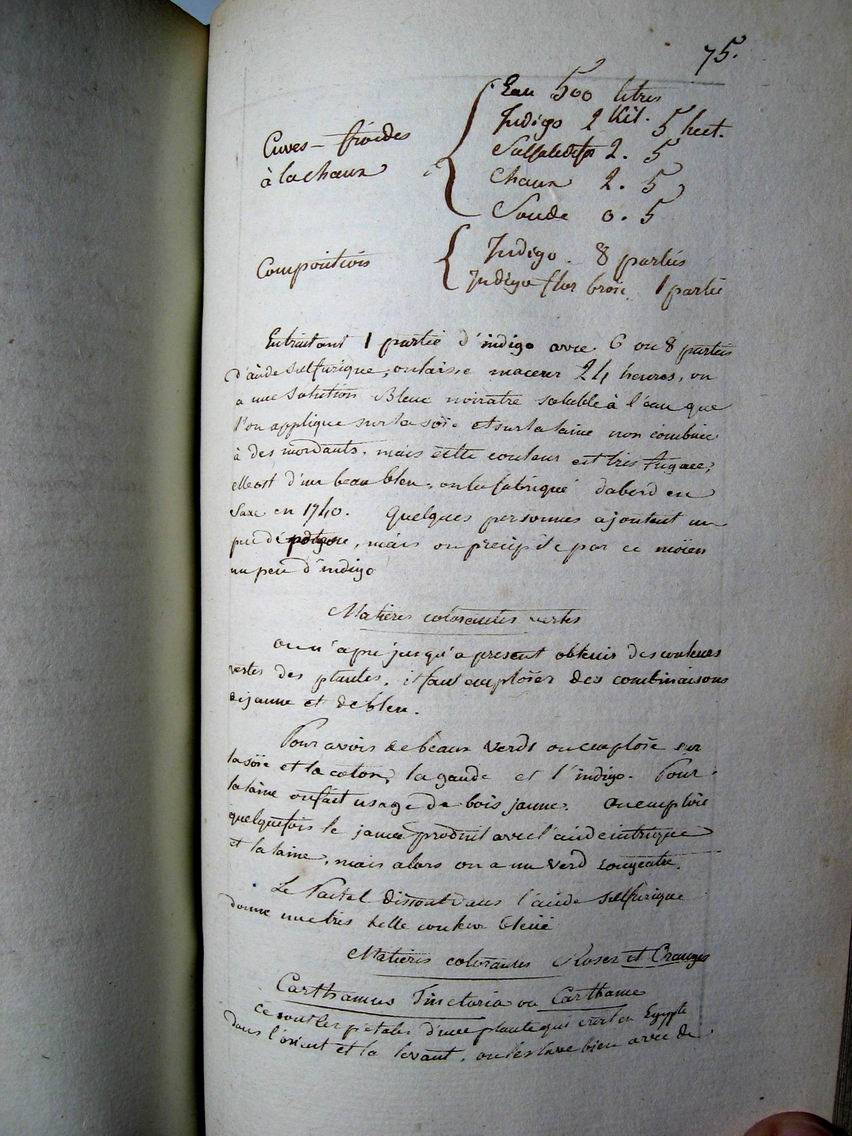 75.
Eau 500 litres
Indigo 2 Kil. 5 hect.
Cuves froides
à la chaux
2. 5
Chaux 2. 5
Soude 0. 5
Indigo. 8 parties
Composition
Indigo flor broié 1 partie
En traitant 1 partie d'indigo avec 6 ou 8 parties
d'acide sulfurique, on laisse macerer 24 heures, on
a une solution Bleue noiratre soluble à l'eau que
l'on applique sur la soïe et sur la laine non combinée
à des mordants, mais cette couleur est tres fugace,
elle est d'un beau bleu, on la fabriqué dabord en
Saxe en 1740. Quelques personnes ajoutent un
peu de potasse, mais on precipite par ce moïen
un peu d'indigo
Matieres colorantes vertes
on n'a pu jusqu'a present obtenir des couleurs
vertes des plantes, il faut emploïer des combinaisons
de jaune et de bleu.
Pour avoir de beaux verds on emploïe sur
la soïe et la coton, la gaude et l'indigo. Pour
la laine on fait usage de bois jaune. On emploïe
quelquefois le jaune produit avec l'acide nitrique
et la laine, mais alors on a un verd rougeatre.
Le Pastel dissout dans l'acide sulfurique
donne une tres belle couleur bleüe
Matieres colorantes Roses et Oranges
Carthamus Tinctoria ou Carthame
ce sont les petales d'une plante qui croit en Egypte
dans l'orient et la levant, on les lave bien avec de